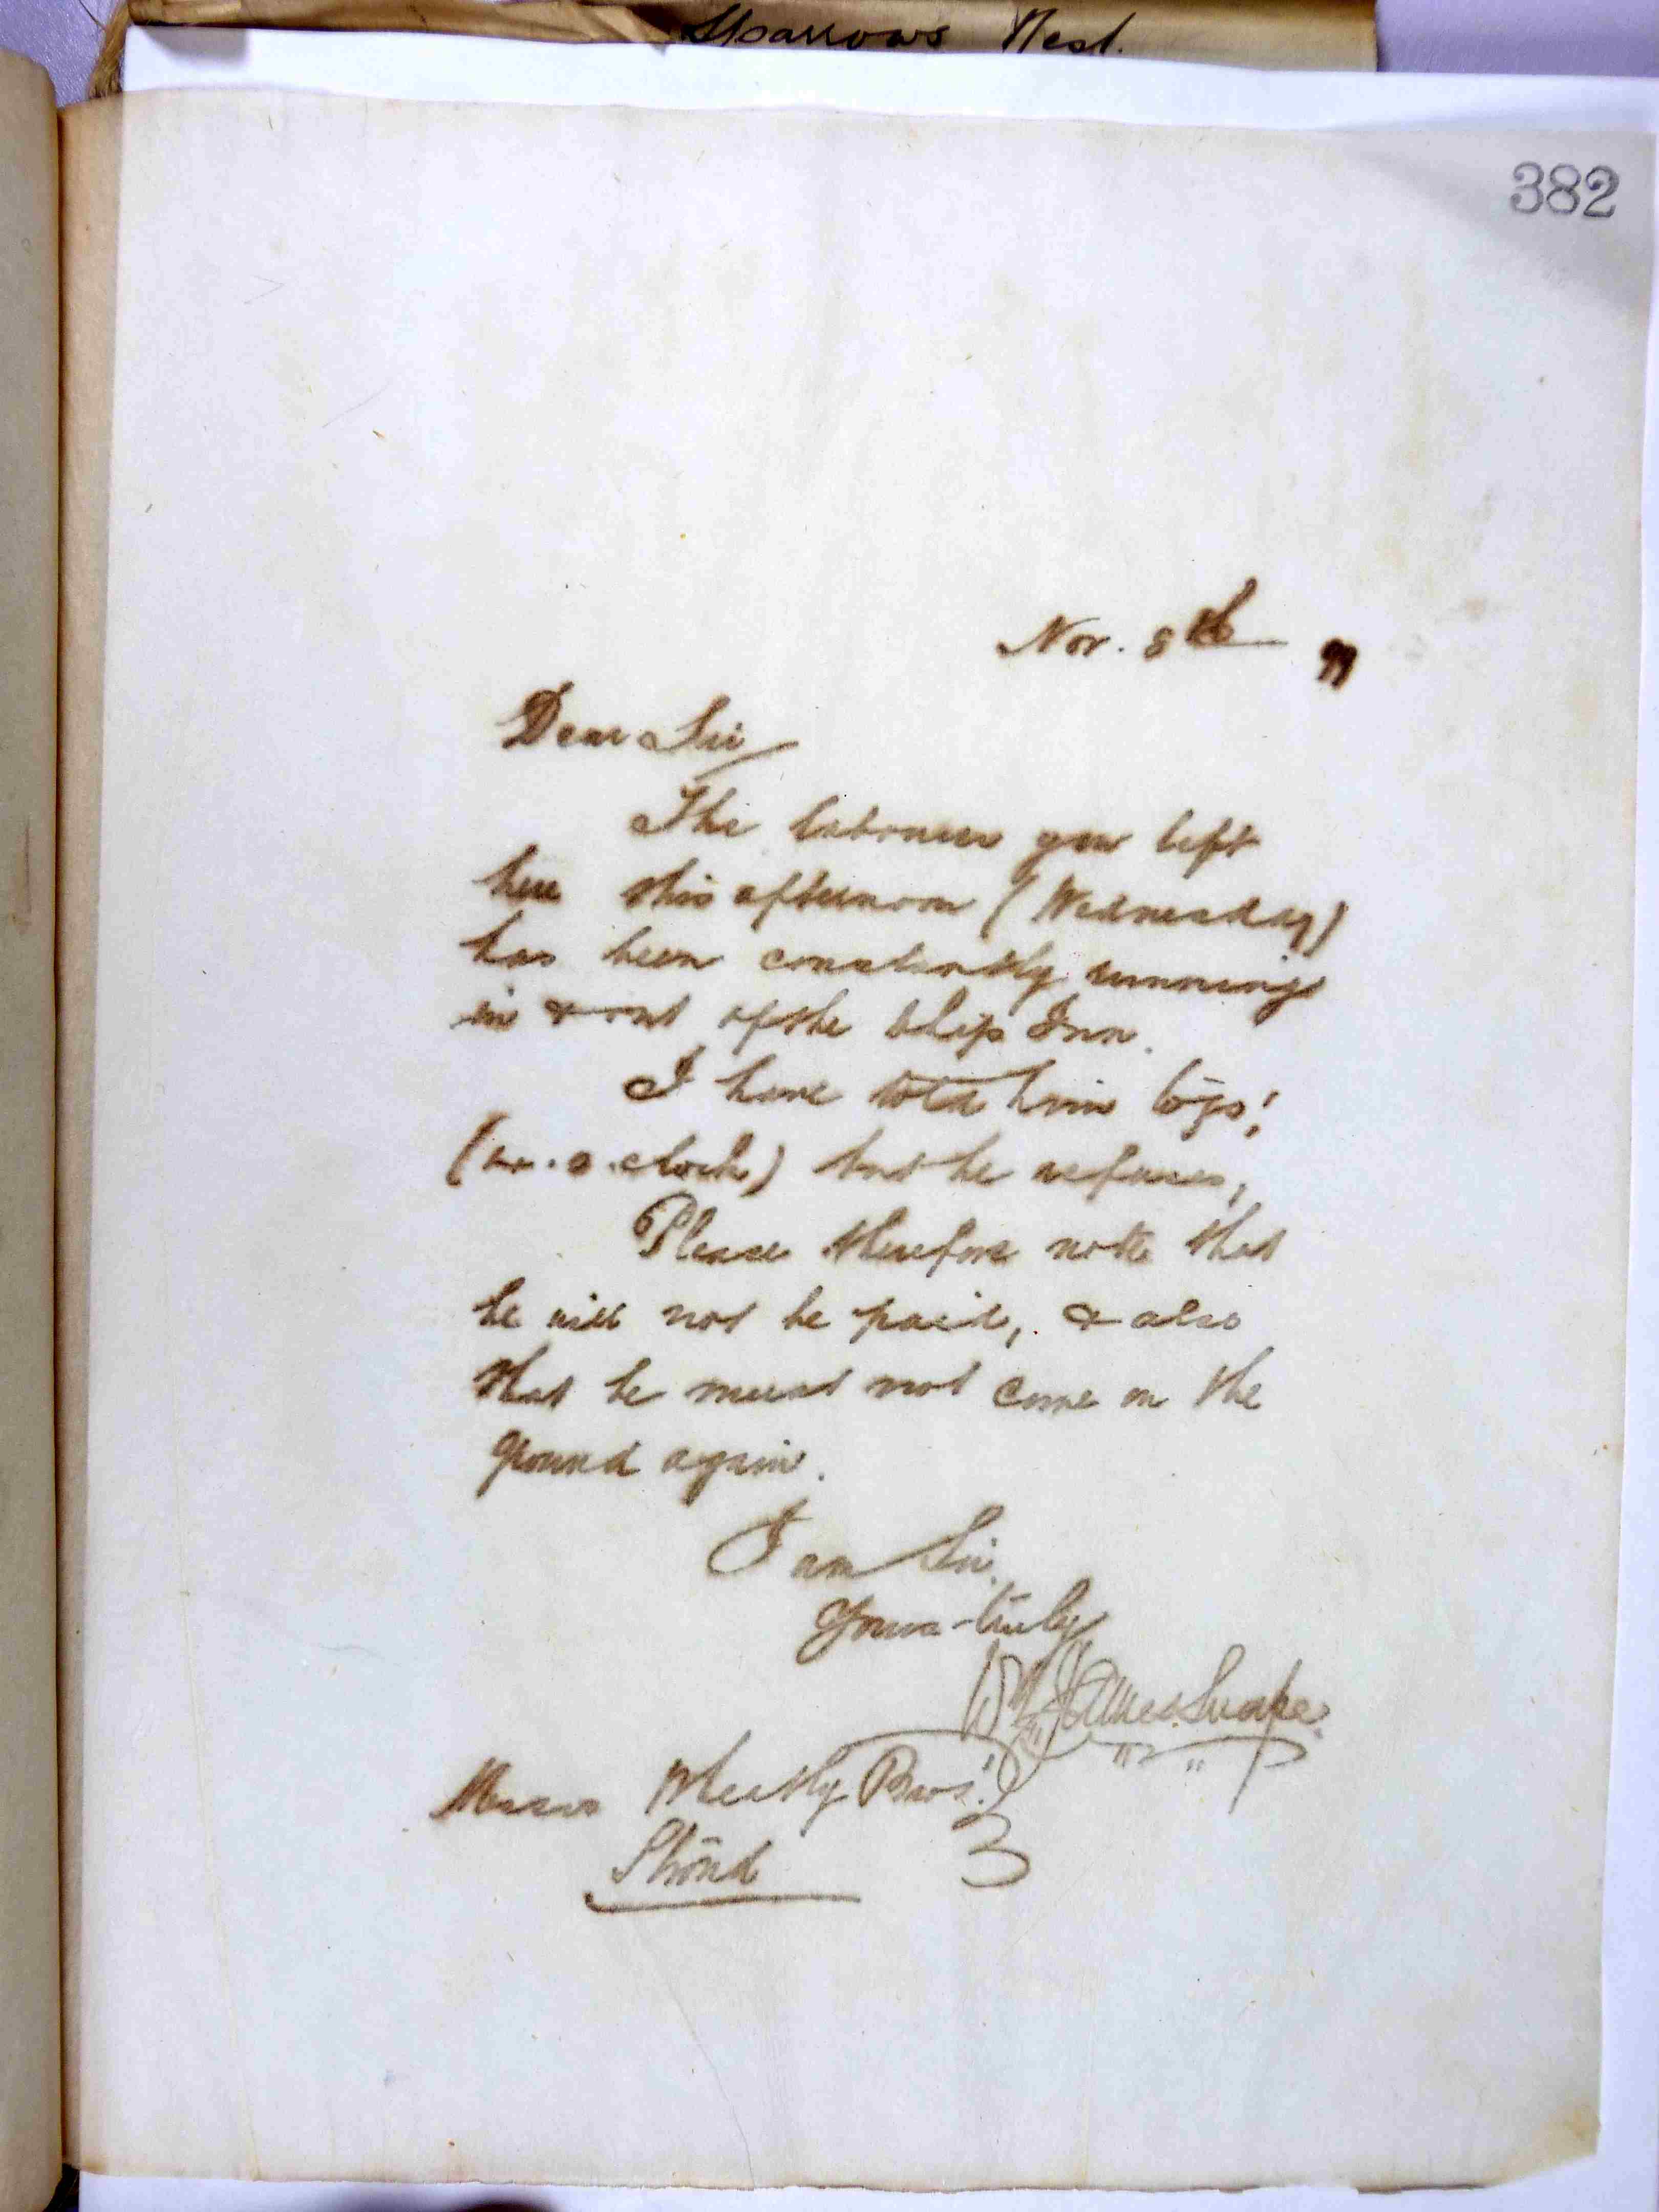 Sparrows Nest.
382
Nov. 8th 99
Dear Sir
The labourer you left
here this afternoon (Wednesday)
has been constantly running
in & out of the Ship Inn.
I have told him to go!
( o.clock) but he refuses,
Please therefore note that
he will not be paid, & also
that he must not come on the
ground again.
I am Sir
Yours truly
Wm James
Messrs Wheatly Bros.